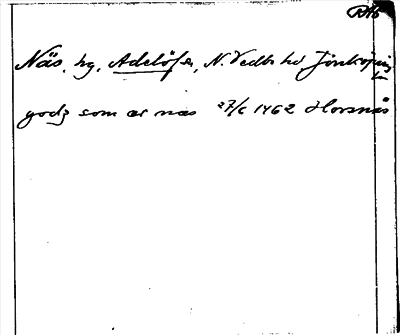 RAp
Näs, hg, Adelöfs, N. Vedb hd, Jönköpings
L
godz som ær næs 27/6 1462 Hornsnäs